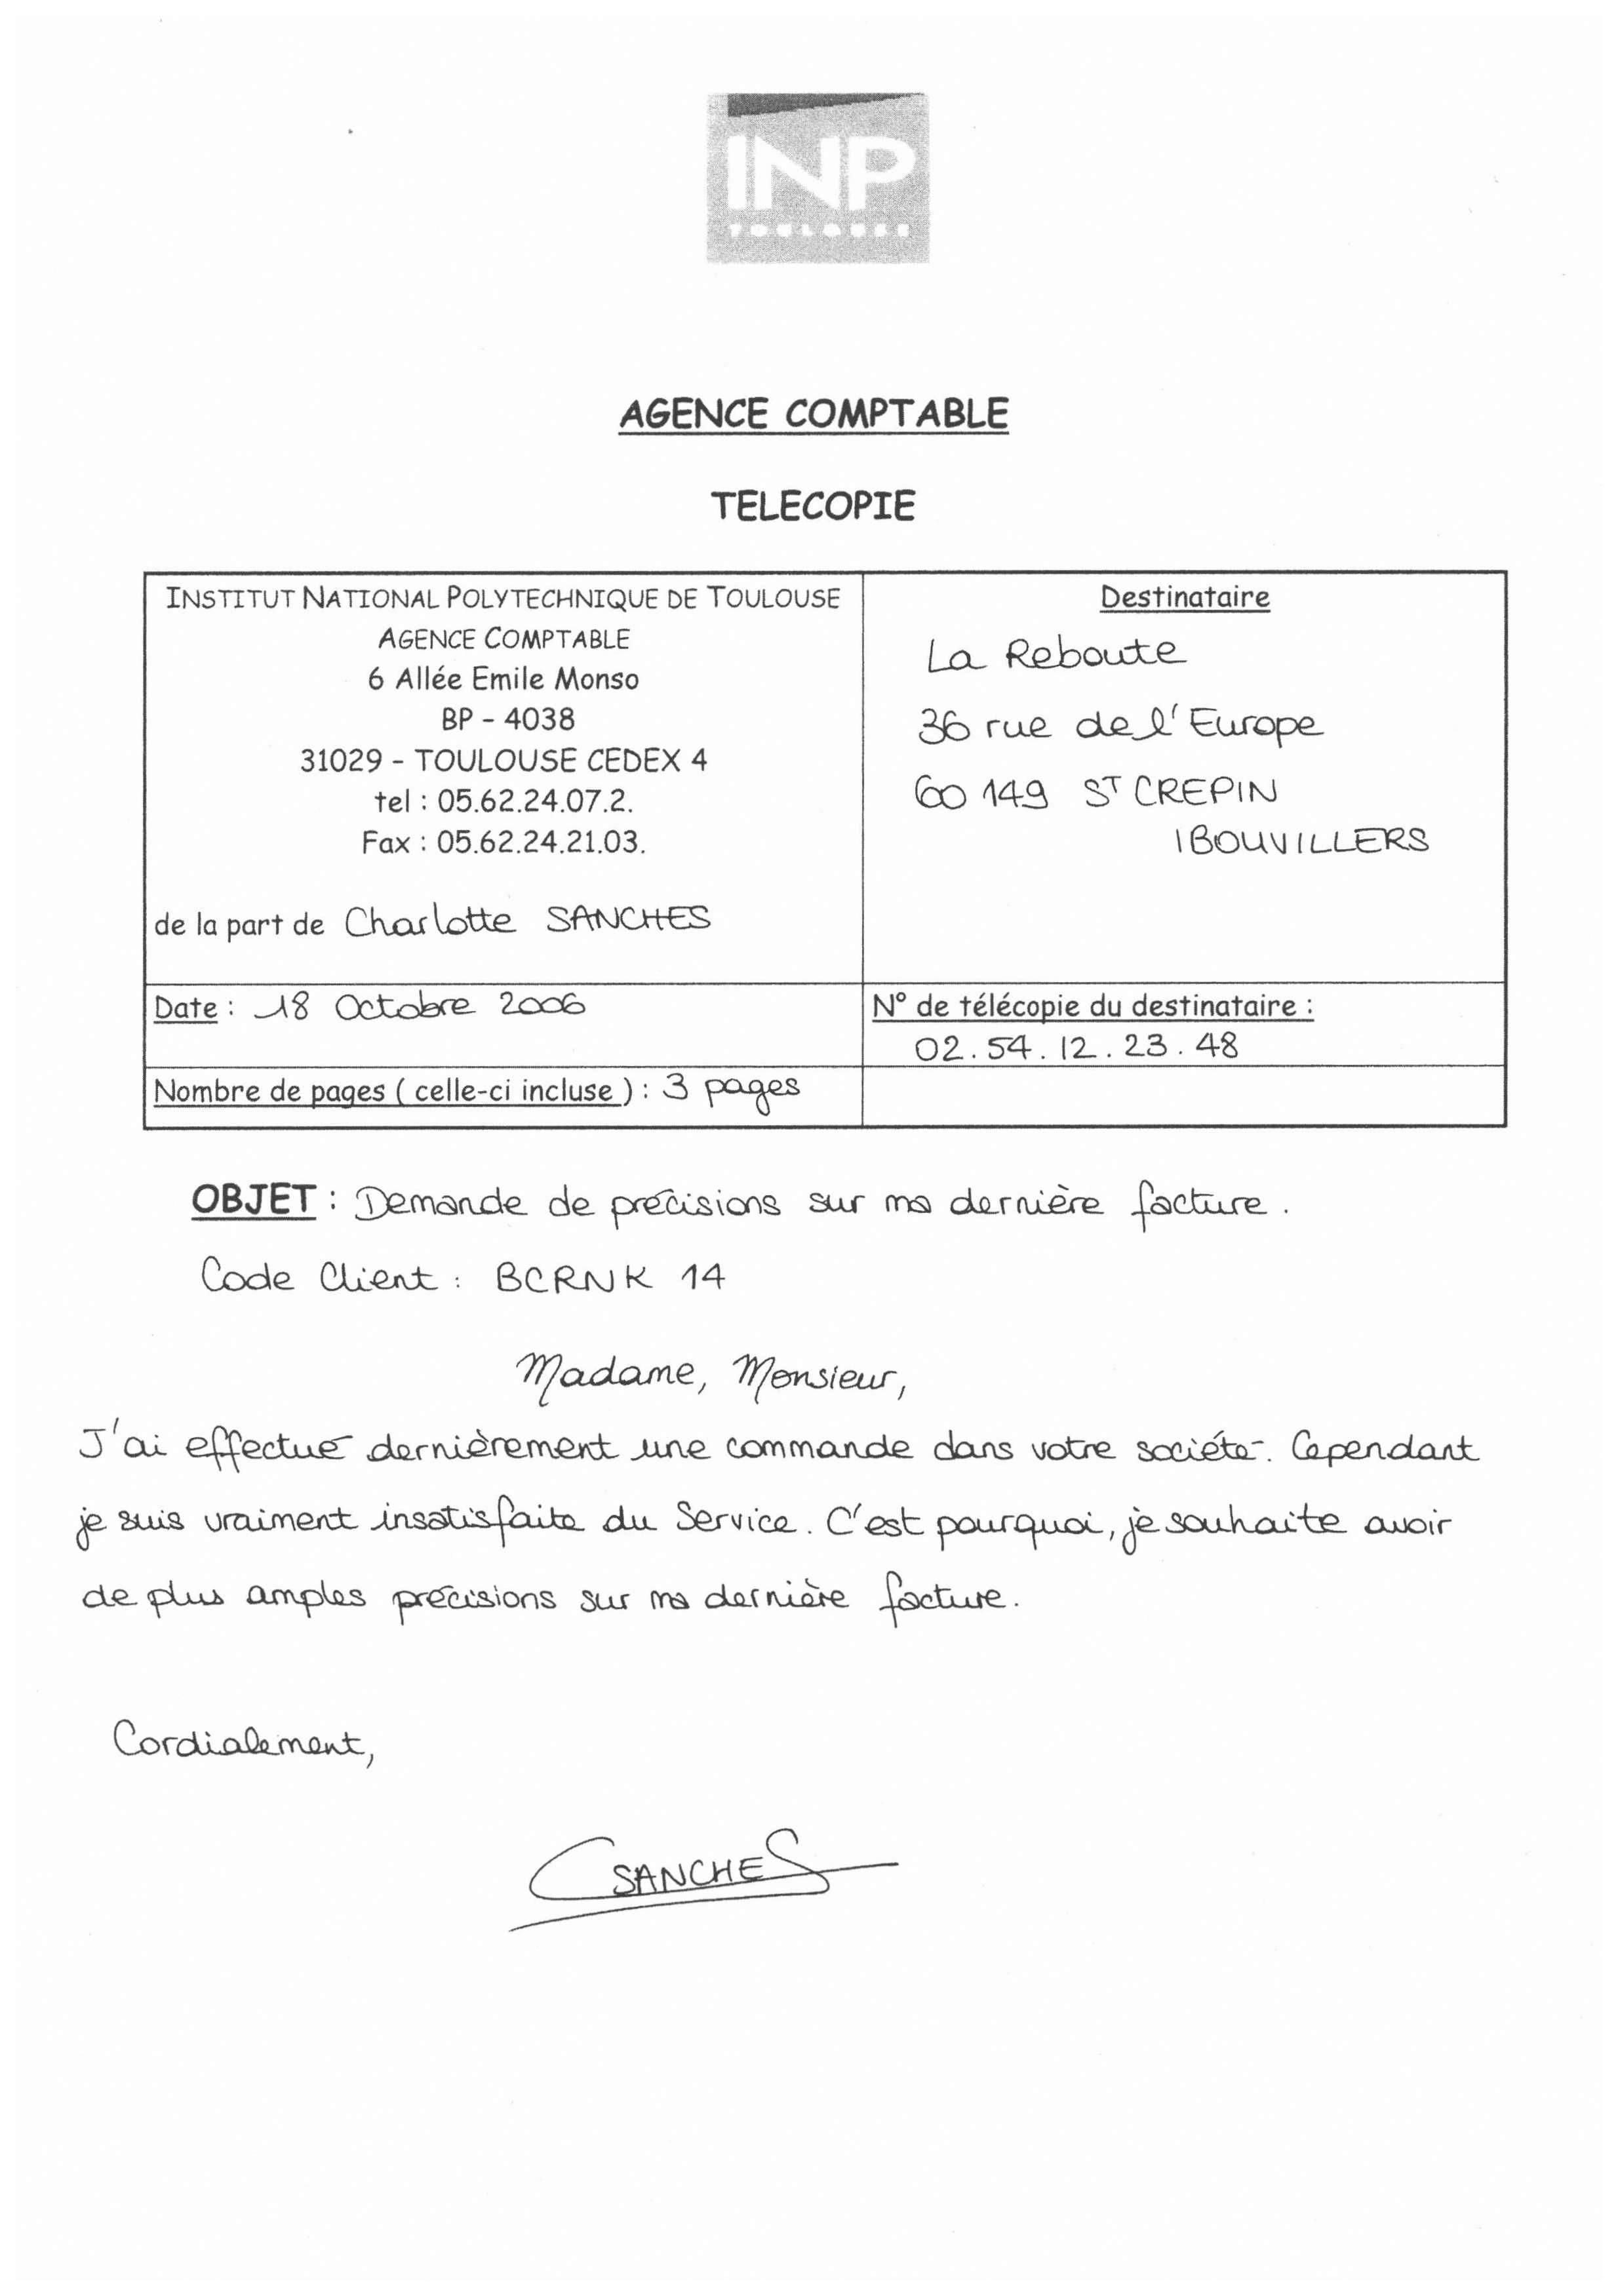 INP
TOULOUSE
AGENCE COMPTABLE
TELECOPIE
INSTITUT NATIONAL POLYTECHNIQUE DE TOULOUSE
AGENCE COMPTABLE
6 Allée Emile Monso
BP - 4038
31029 - TOULOUSE CEDEX 4
tel : 05.62.24.07.2.
Fax : 05.62.24.21.03.
de la part de Charlotte SANCHES
Destinataire
La Reboute
36 rue de l'Europe
60 149 ST CREPIN
IBOUVILLERS
Date : 18 Octobre 2006
N° de télécopie du destinataire :
02.54.12.23.48
Nombre de pages ( celle-ci incluse ) : 3 pages
OBJET : Demande de précisions sur ma dernière facture.
Code Client : BCRNK 14
Madame, Monsieur,
J'ai effectué dernièrement une commande dans votre société. Cependant
je suis vraiment insatisfaite du Service. C'est pourquoi, je souhaite avoir
de plus amples précisions sur ma dernière facture.
Cordialement,
CSANCHES